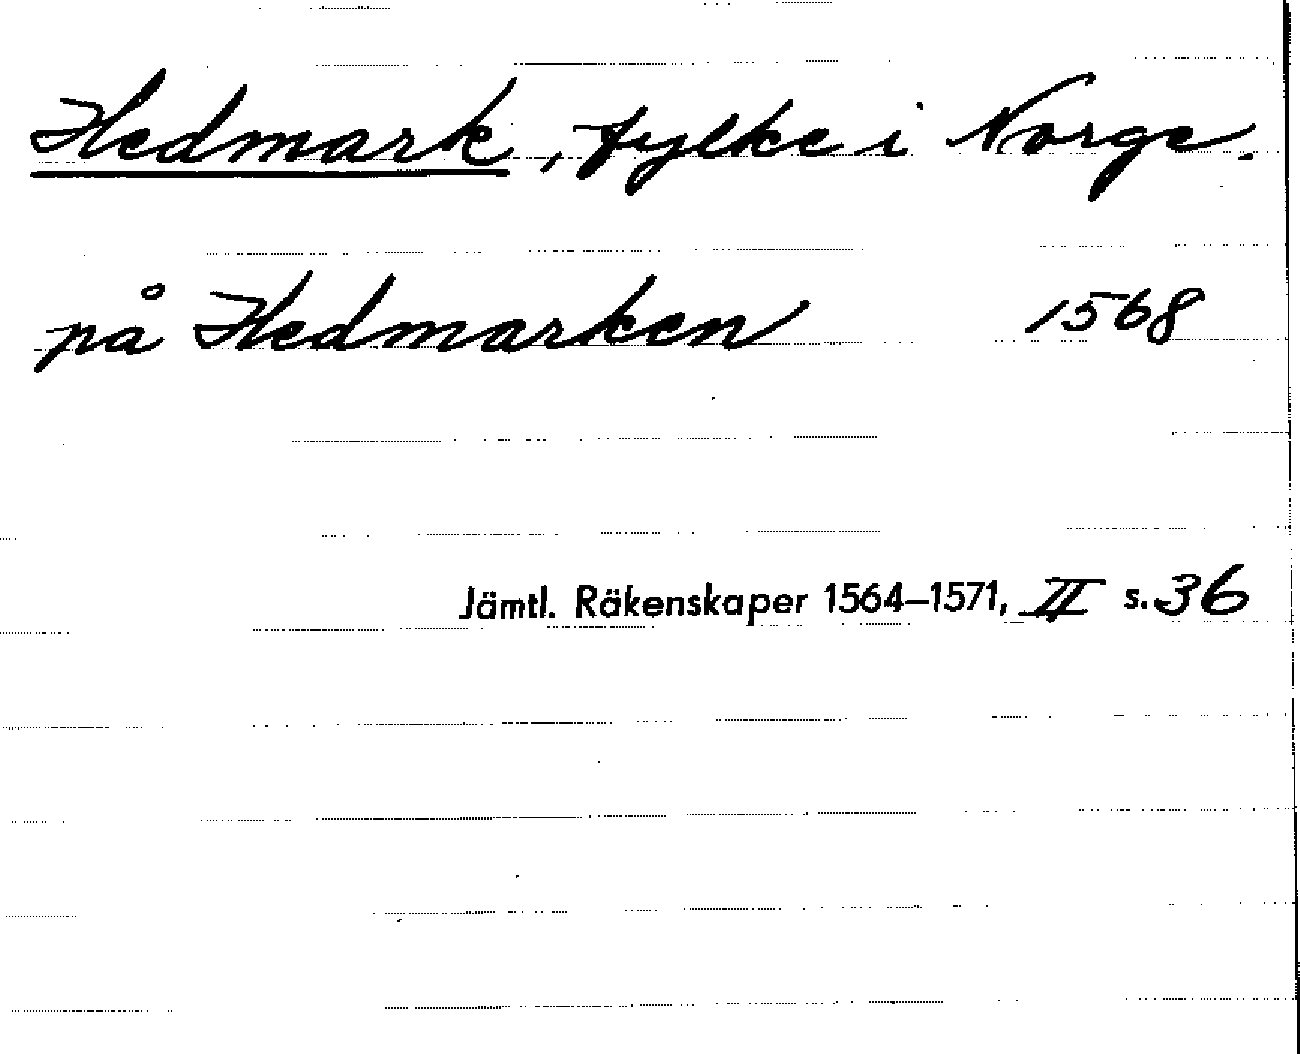 Hedmark, fylke i Norge.
på Hedmarken 1568
Jämtl. Räkenskaper 1564–1571, II s. 36